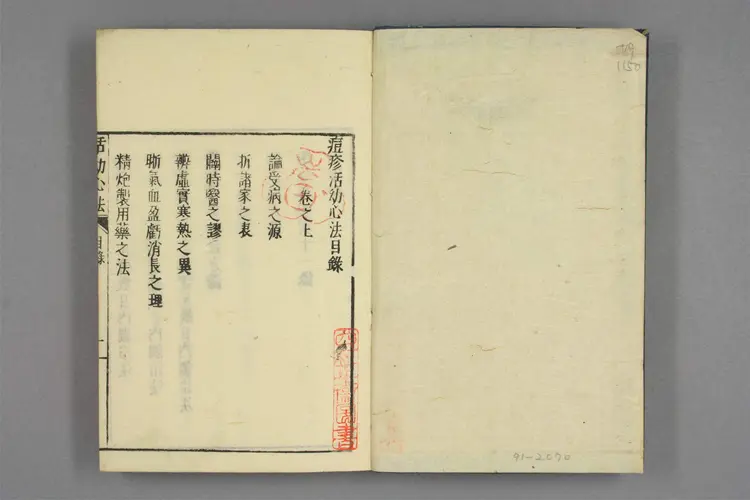 痘疹活幼心法目錄
卷之上
論受病之源
折諸家之衷
闢時醫之謬
辨虛實寒熱之異
晰氣血盈虧消長之理
精炮製用藥之法
活幼心法
目錄
一
1150
91-2070